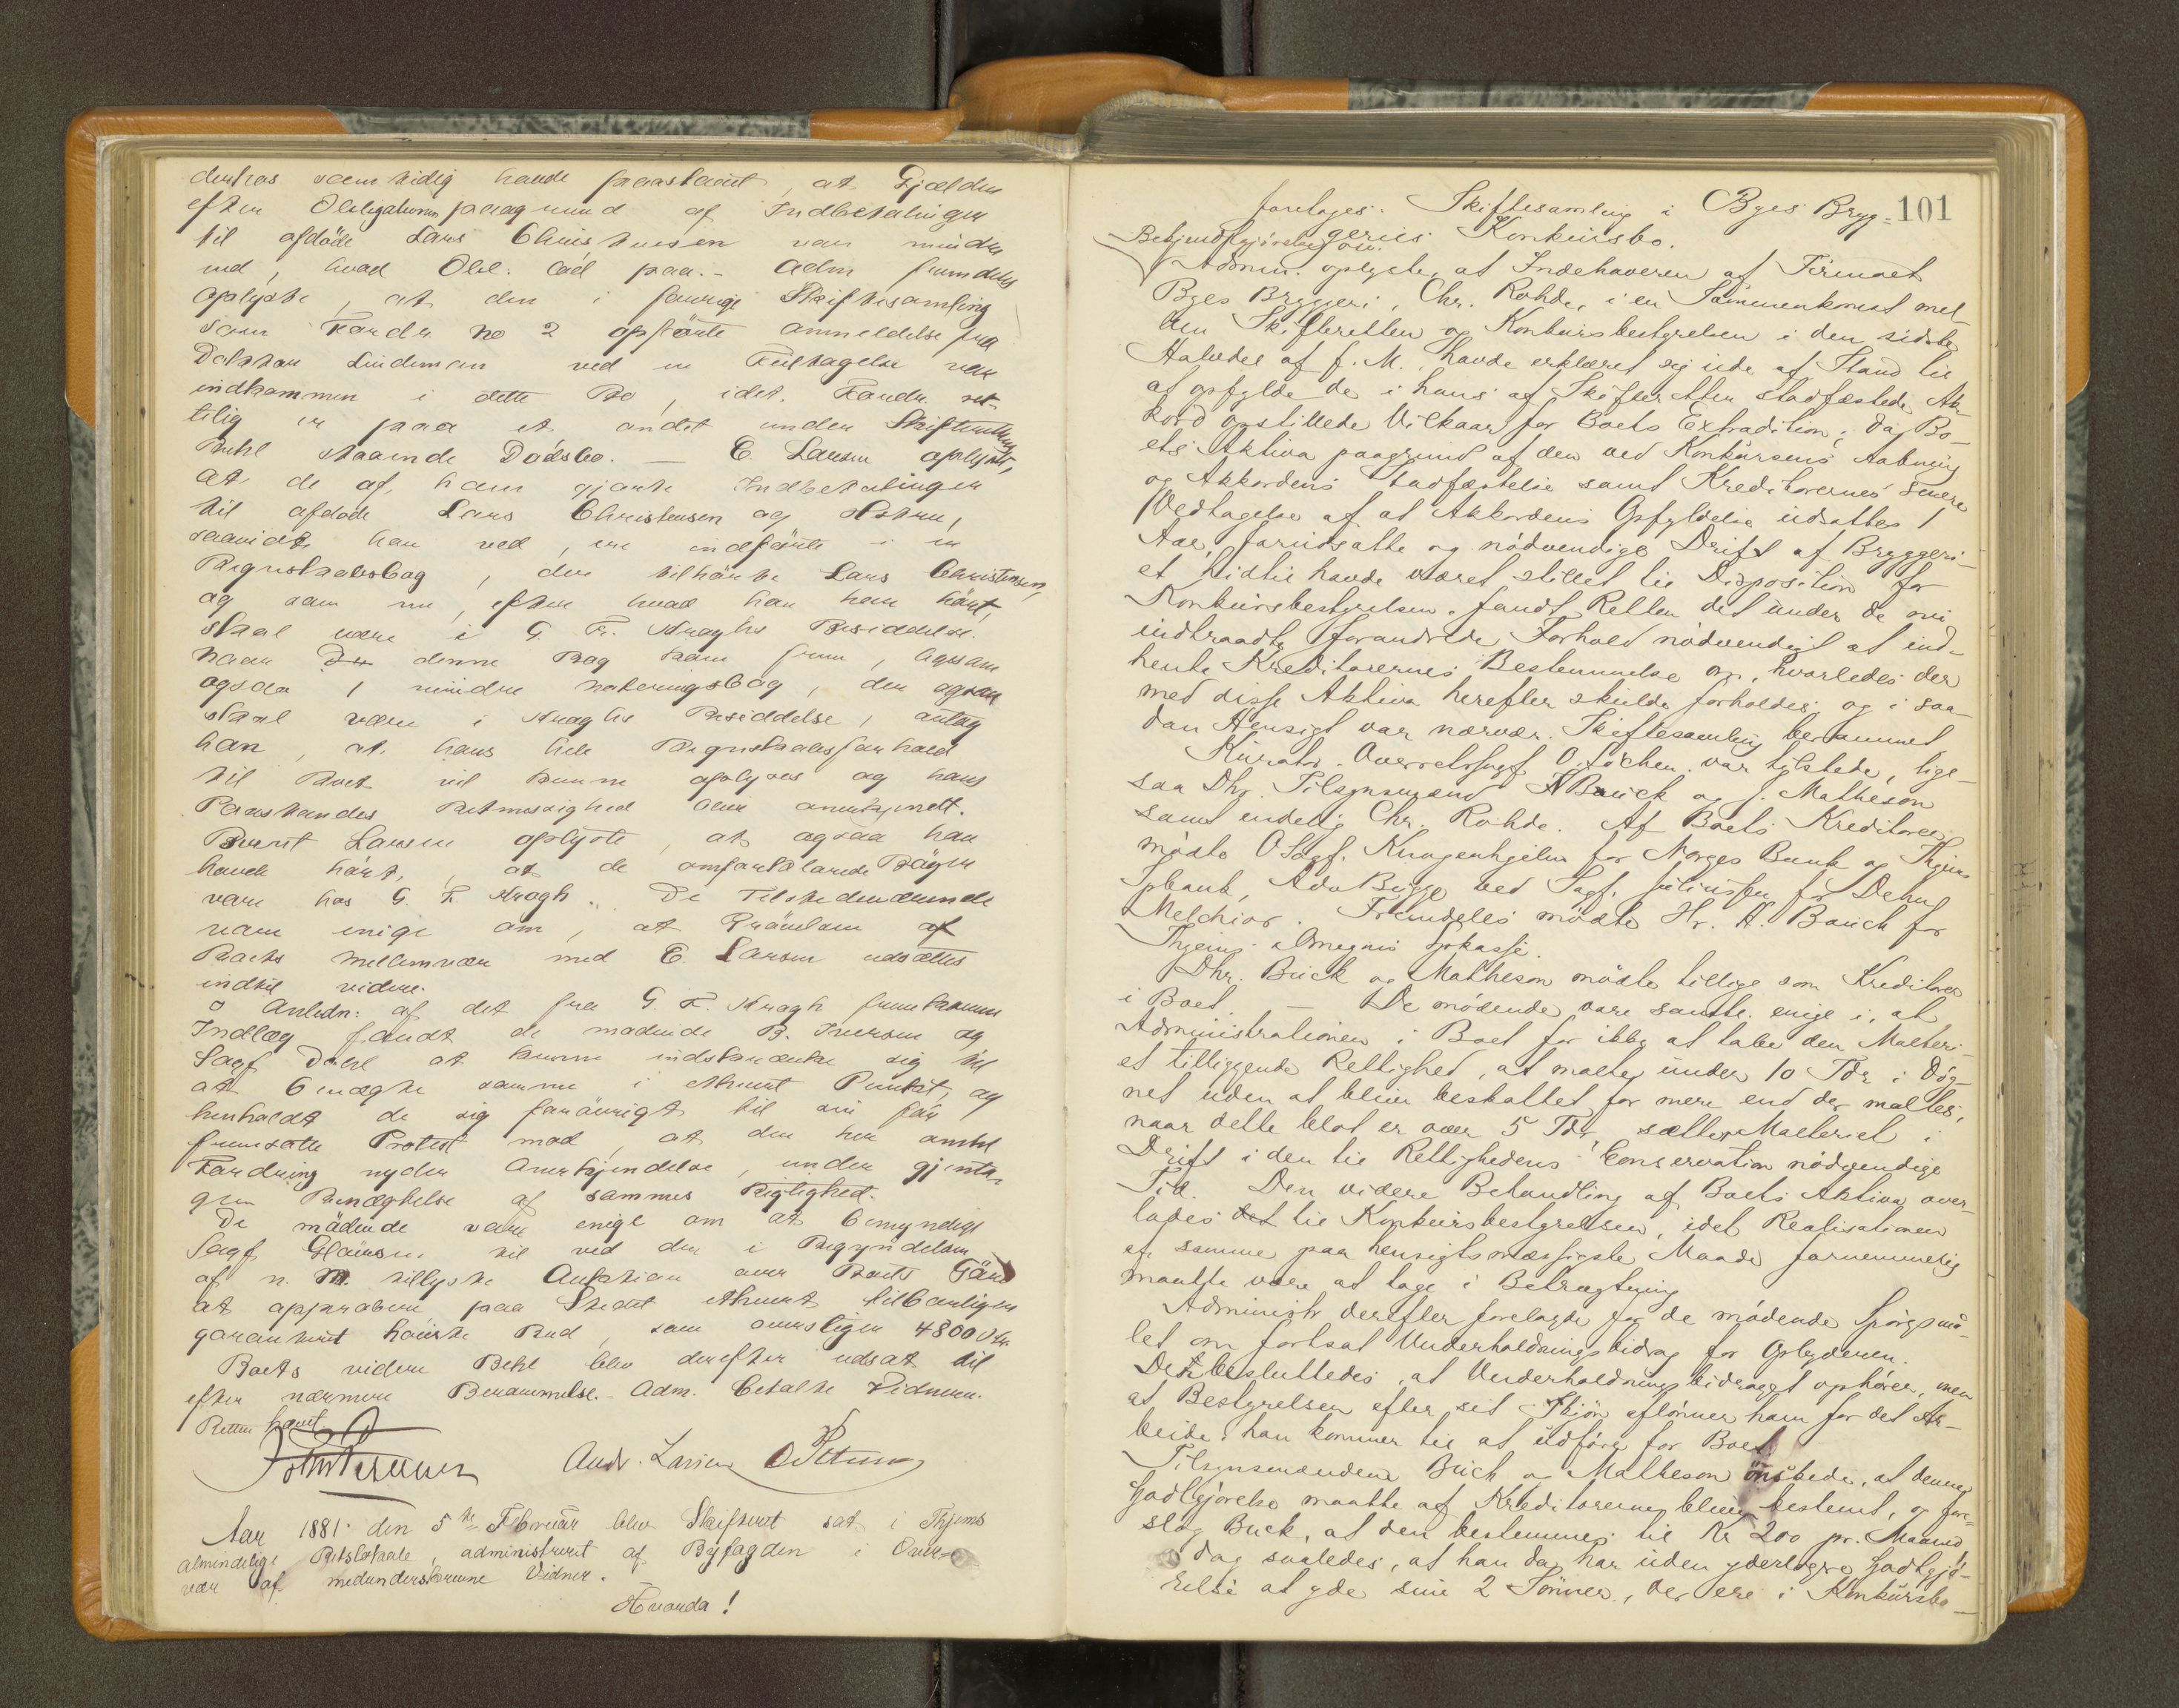 derhos samtidig havde paastaaet, at Gjælden
efter Obligationen paagrund af Indbetalinger
til afdøde Lars Christensen var mindre
end, hvad Obl. lød paa. – Adm. fremdeles
oplyste, at den i forrige Skiftesamling
som Fordr. No 2 opførte Anmeldelse fra
Doktor Lindeman ved en Feiltagelse var
indkommen i dette Bo, idet Fordr. ret-
telig er paa et andet under Skifterettens
Behl staaende Dødsbo. – E. Larsen oplyste,
at de af ham gjorte Indbetalinger
til afdøde Lars Christensen og Hstru,
saavidt han ved, ere indførte i en
Regnskabsbog, der tilhørte Lars Christensen,
og som nu, efter hvad han har hørt,
skal være i G. F. Kraghs Besiddelse.
Naar denne Bog kom frem, ligesom
ogsaa 1 mindre Noteringsbog, der ogsaa
skal være i Kraghs Besiddelse, antog
han, at hans hele Regnskabsforhold
til Boet vil kunne oplyses og hans
Paastandes Retmæssighed blive anerkjendt.
Bernt Larsen oplyste, at ogsaa han
havde hørt, at de omforklarede Bøger
vare hos G. F. Kragh. De Tilstedeværende
vare enige om, at Prøvelsen af
Boets Mellemvær med E. Larsen udsættes
indtil videre.
I Anledn: af det fra G. F. Kragh fremkomne
Indlæg fandt de mødende B. Iversen og
Sagf. Dahl at kunne indskrænke sig til
at benægte samme i ethvert Punkt, og
henholdt de sig forøvrigt til sin før
fremsatte Protest mod, at den her anmel
Fordring nyder Anerkjendelse, under gjenta-
gen Benægtelse af sammes Rigtighed.
De mødende vare enige om at bemyndige
Sagf Glørsen til ved den i Begyndelsen
af n. M. tillyste Auktion over Boets Gård
at approbere paa Stedet ethvert tilbørligen
garanteret høieste Bud, som overstiger 4800 Kr.
Boets videre Behl blev derefter udsat til
efter nærmere Berammelse. – Adm. betalte Vidnerne.
Retten hævet
Andr. Larsen O Petersen
Aar 1881 den 5te Februar blev Skifteret sat i Thjems
almindelige Retslokale, administreret af Byfogden i Over-
vær af medunderskrevne Vidner.
Hvorda!
101
foretoges: Skiftesamling i Byes Bryg-
geries Konkursbo.
Bekjendtgjørelse
Admin. oplyste, at Indehaveren af Firmaet
Byes Bryggeri, Chr. Rohde, i en Sammenkomst mel-
lem Skifteretten og Konkursbestyrelsen i den sidste
Halvdel af f. M. havde erklæret sig ude af Stand til
at opfylde de i hans af Skifteretten stadfæstede Ak-
kord opstillede Vilkaar for Boets Extradition; da Bo-
ets Aktiva paagrund af den ved Konkursens Aabning
og Akkordens Stadfæstelse samt Kreditorernes senere
Vedtagelse af at Akkordens Opfyldelse udsattes 1
Aar, forudsatte og nødvendige Drift af Bryggeri-
et hidtil havde været stillet til Disposition for
Konkursbestyrelsen, fandt Retten det under de nu
indtraadte forandrede Forhold nødvendigt at ind-
hente Kreditorernes Bestemmelse om, hvorledes der
med disse Aktiva herefter skulde forholdes, og i saa-
dan Hensigt var nærvær. Skiftesamling berammet.
Kurator, Overretssagf. O. Løchen var tilstede, lige-
saa Dhr. Tilsynsmænd H Bauck og J. Matheson
samt endelig Chr. Rohde. Af Boets Kreditorer
mødte OSagf. Klingenhjelm for Norges Bank og Thjems
Spbank, Adv Bugge ved Sagf. Juliussen for Dehn
Melchior. Fremdeles mødte Hr. H. Bauck for
Thjems Omegns Spkasse.
Dhr. Buck og Matheson mødte tillige som Kreditorer
i Boet. – De mødende vare samtl. enige i, at
Administrationen i Boet for ikke at tabe den Malteri-
et tilliggende Rettighed, at malte under 10 Tdr i Døg-
net uden at blive beskattet for mere end der maltes,
naar dette blot er over 5 Tdr, sætter Malteriet i
Drift i den til Rettighedens Conservation nødvendige
Tid. Den videre Behandling af Boets Aktiva over-
lodes det til Konkursbestyrelsen, idet Realisationen
af samme paa hensigtsmæssigste Maade fornemmelig
maatte være at tage i Betragtning
Administr derefter forelagde for de mødende Spørgsmå-
let om fortsat Underholdningsbidrag for Opbyderen.
Det besluttedes, at Underholdningsbidraget ophører, men
at Bestyrelsen efter sit Skjøn aflønner ham for det Ar-
beide, han kommer til at udføre for Boet.
Tilsynsmændene Buck og Matheson ønskede, at denne
Godtgjørelse maatte af Kreditorerne blive bestemt, og fore-
slog Buck, at den bestemmes til Kr 200 pr. Maaned,
dog saaledes, at han da har uden yderligere Godtgjø-
relse at yde sine 2 Sønner, der ere i Konkursbo-